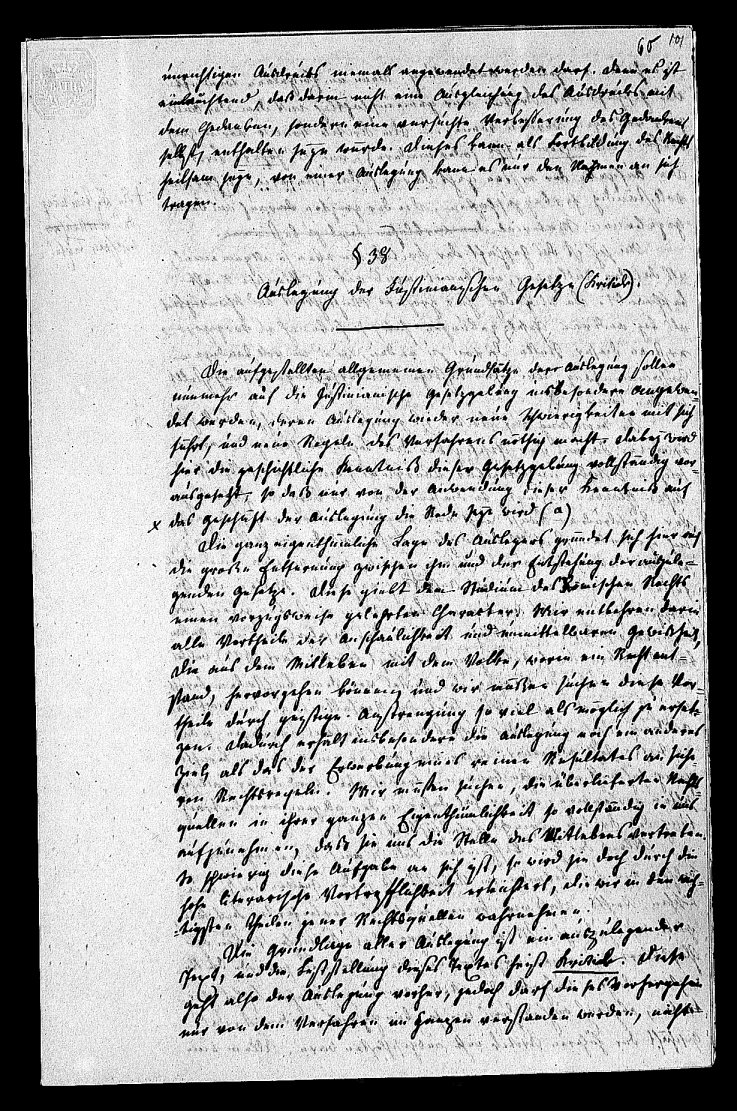 65 101
unrichtigen Ausdrucks niemals angewendet werden darf. Denn es ist
einleuchtend, daß darin nicht eine Ausgleichung des Ausdrucks mit
dem Gedanken, sondern eine versuchte Verbesserung des Gedankens
selbst, enthalten seyn würde. Dieses kann als Fortbildung des Rechts
heilsam seyn, von einer Auslegung kann es nur den Nahmen an sich
tragen.
§ 38
Auslegung der Justinianischen Gesetze (Kritik).
Die aufgestellten allgemeinen Grundsätze der Auslegung sollen
nunmehr auf die Justinianische Gesetzgebung insbesondere angewen-
det werden, deren Auslegung wieder neue Schwierigkeiten mit sich
führt, und neue Regeln des Verfahrens nöthig macht. Dabey wird
hier die geschichtliche Kenntniß dieser Gesetzgebung vollständig vor-
ausgesetzt, so daß nur von der Anwendung dieser Kenntniß auf
x das Geschäft der Auslegung die Rede seyn wird (a)
Die ganz eigenthümliche Lage des Auslegers gründet sich hier auf
die großen Entfernung zwischen ihm und der Entstehung der auszule-
genden Gesetze. Diese giebt dem Studium des Römischen Rechts
einen vorzugsweise gelehrten Character. Wir entbehren darin
alle Vortheile der Anschaulichkeit und unmittelbaren Gewißheit,
die aus dem Mitleben mit dem Volke, worin ein Recht ent-
stand, hervorgehen können, und wir müssen suchen diese Vor-
theile durch geistige Anstrengung so viel als möglich zu erset-
zen. Dadurch erhält insbesondere die Auslegung noch ein anderes
Ziel als das der Erwerbung eines reinen Resultates an siche-
ren Rechtsregeln. Wir müssen suchen, die überlieferten Rechts-
quellen in ihrer ganzen Eigenthümlichkeit so vollständig in uns
aufzunehmen, daß sie uns die Stelle des Mitlebens vertreten.
So schwierig diese Aufgabe an sich ist, so wird sie doch durch die
hohe literarische Vortrefflichkeit erleichtert, die wir in den wich-
tigsten Theilen jener Rechtsquellen wahrnehmen.
Die Grundlage aller Auslegung ist ein auszulegender
Text, und die Feststellung dieses Textes heißt Kritik. Diese
geht also der Auslegung vorher, jedoch darf dieses Vorhergehen
nur von dem Verfahren im Ganzen verstanden werden, nicht